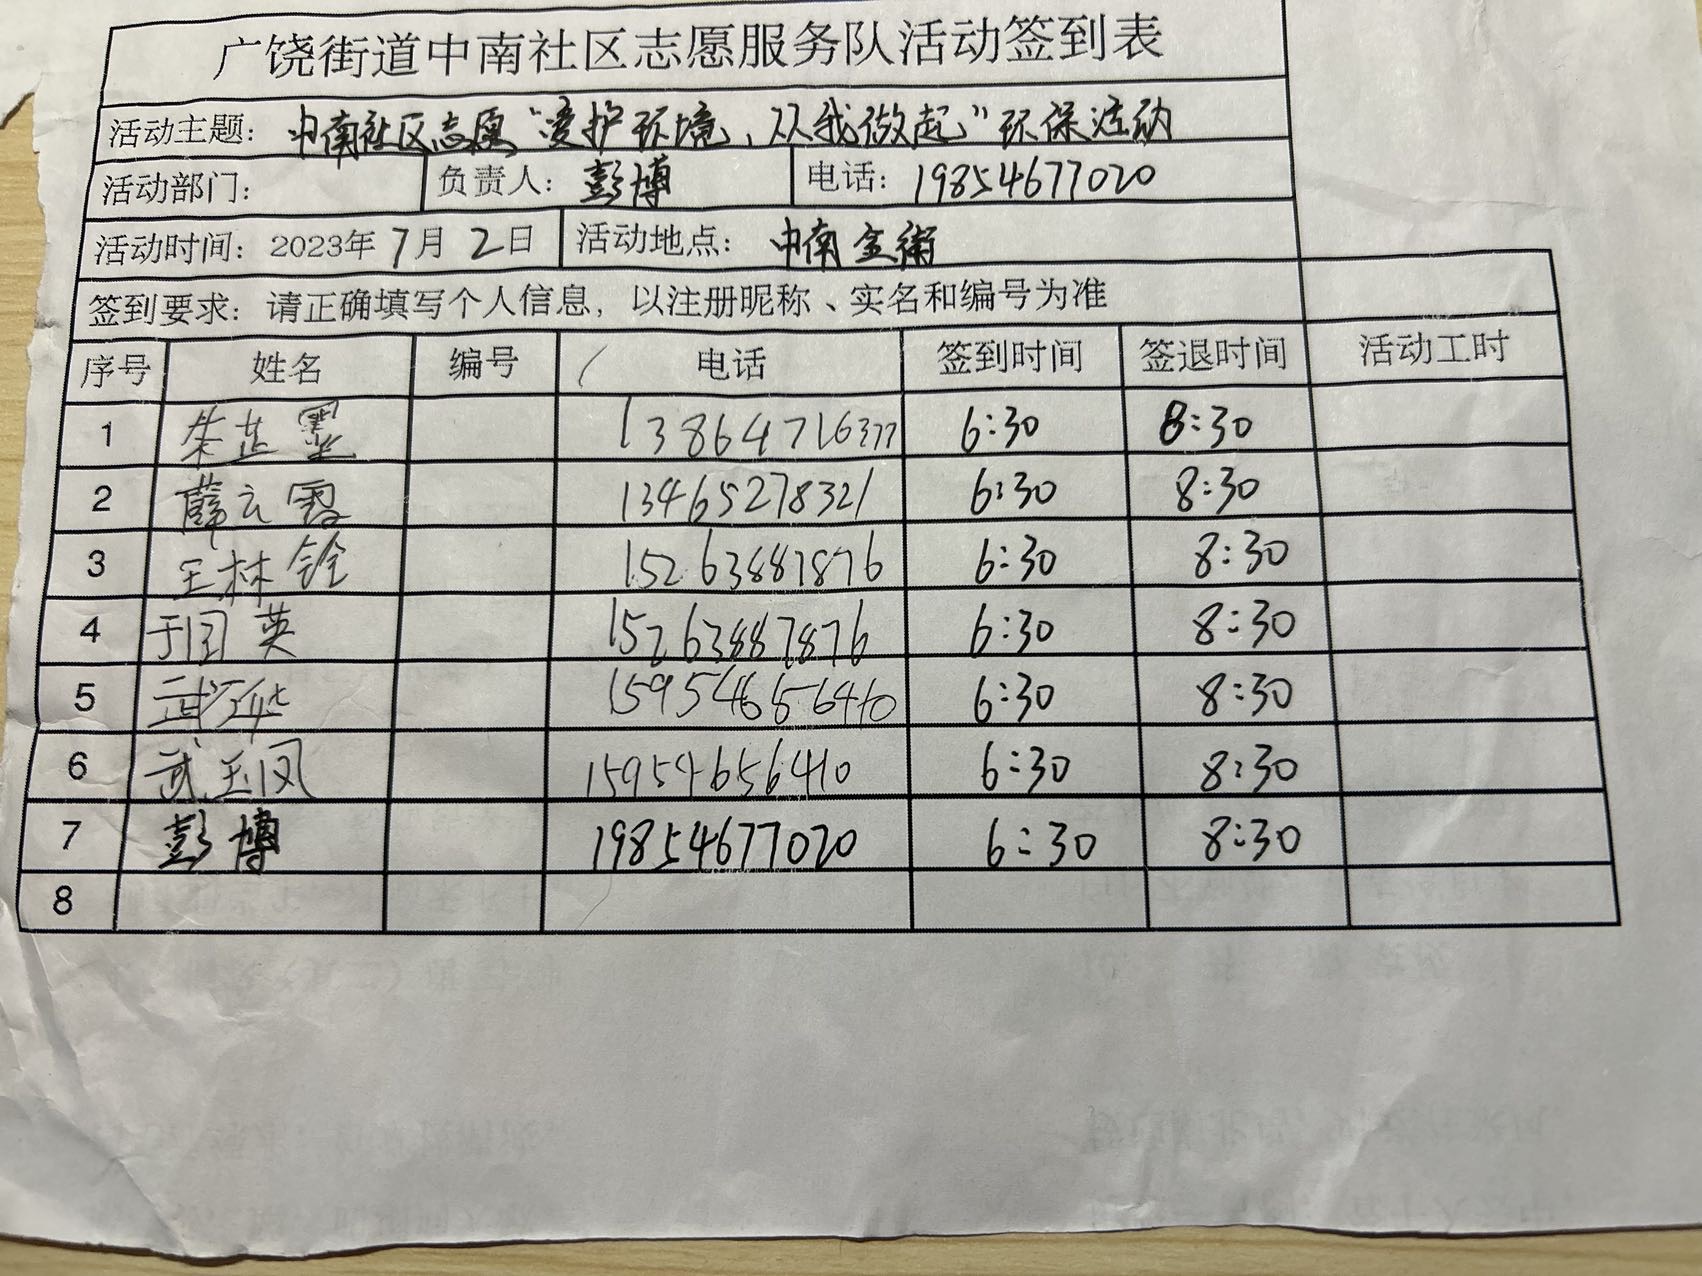 广饶街道中南社区志愿服务队活动签到表
活动主题：中南社区志愿“爱护环境，从我做起”环保活动
活动部门： 负责人：彭博 电话：19854677020
活动时间：2023年7月2日 活动地点：中南金街
签到要求：请正确填写个人信息，以注册昵称、实名和编号为准
序号 姓名 编号 电话 签到时间 签退时间 活动工时
1 朱芷墨 13864716377 6:30 8:30
2 薛云霞 13465278321 6:30 8:30
3 王林铨 15263887876 6:30 8:30
4 于国英 15263887876 6:30 8:30
5 武 15954656410 6:30 8:30
6 武玉凤 15954656410 6:30 8:30
7 彭博 19854677020 6:30 8:30
8